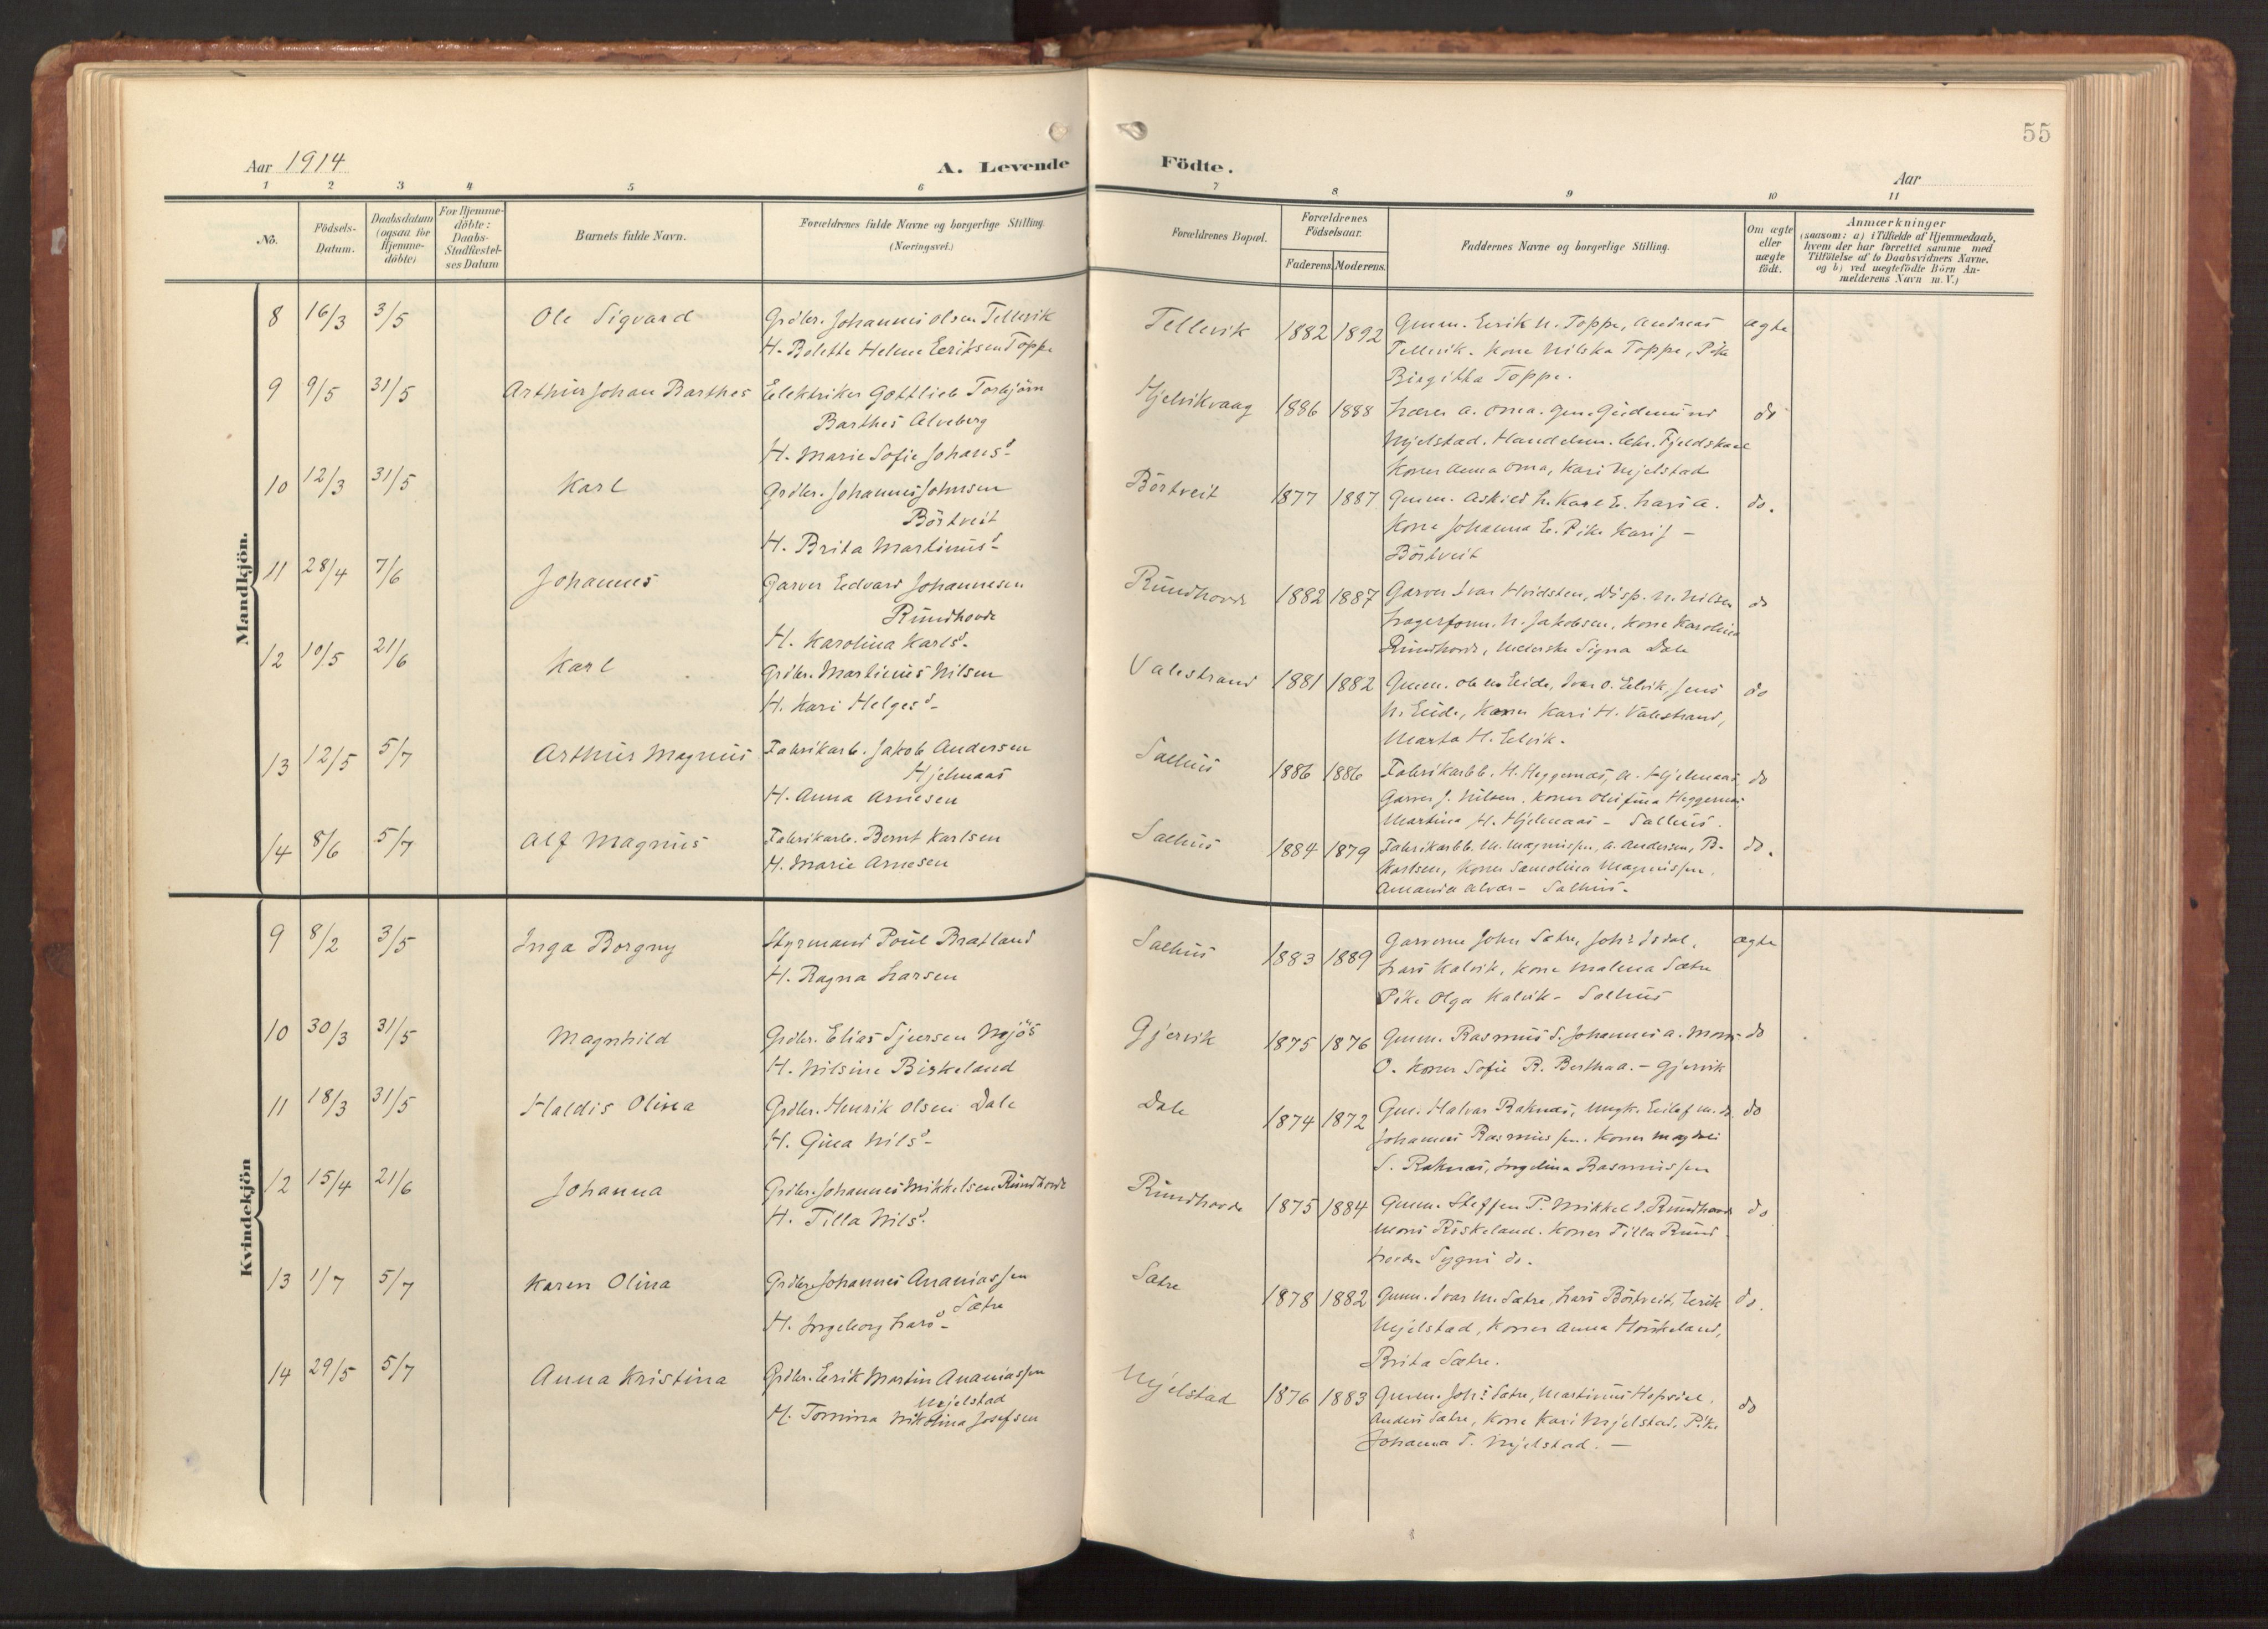 55
Aar 1914
A. Levende Födte.
Aar
1 2 3 4 5 6 7 8 9 10 11
No.
Födsels-Datum.
Daabsdatum (ogsaa for Hjemme-döbte)
For Hjemme-döbte: Daabs-Stadfæstel-ses Datum
Barnets fulde Navn.
Forældrenes fulde Navne og borgerlige Stilling.
(Næringsvei.)
Forældrenes Bopæl.
Forældrenes Födselsaar.
Faderens. Moderens.
Faddernes Navne og borgerlige Stilling.
Om ægte eller uægte födt.
Anmærkninger
(saasom: a) i Tilfælde af Hjemmedaab,
hvem der har forrettet samme med
Tilföielse af to Daabsvidners Navne.
og b) ved uægtefödte Börn An-
melderens Navn m. V.)
Mandkjön.
8 16/3 3/5 Ole Sigvard Grdbr. Johannes Olsen Tellevik Tellevik 1882 1892 Gmm. Eerik N. Toppe, Andreas ægte
H. Bolette Helene Eeriksen Toppe Tellevik. Kone Nilska Toppe, Pike
Birgitha Toppe.
9 9/5 31/5 Arthur Johan Barthes Elektriker Gottlieb Torbjörn Hjelvikvaag 1886 1888 Lærer A. Oma. Gm. Gudmund do
Barthes Alveberg Mjelstad. Handelsm. Chr. Fjeldskaal
H. Marie Sofie Johansd. Koner Anna Oma, Kari Mjelstad
10 12/3 31/5 Karl Grdbr. Johannes Johnsen Börtveit 1877 1887 Gmm. Askild L. Karl E. Lars A. do.
Börtveit Kone Johanna E. Pike Kari J -
H. Brita Martinusd. Börtveit
11 28/4 7/6 Johannes Garver Edvard Johannesen Rundhovde 1882 1887 Garver Ivar Hvidsten, Disp. N. Nilsen do
Rundhovde Lagerform. N. Jakobsen, Kone Karolina
H. Karolina Karlsd. Rundhovde, Signa Dale
12 10/5 21/6 Karl Grdbr. Martinus Nilsen Valestrand 1881 1882 Gmm. Ole Eide, Ivar O. Eelvik, Jens do
H. Kari Helgesd. N. Eide, Koner Kari H. Valestrand,
Marta H. Eelvik.
13 12/5 5/7 Arthur Magnus Fabrikarb. Jakob Andersen Salhus 1886 1886 Fabrikarbb. H. Heggernæs, A. Hjelmaas, do
Hjelmaas Garver J. Nilsen. Koner Olufina Heggernæs,
H. Anna Arnesen Martina H. Hjelmaas - Salhus.
14 8/6 5/7 Alf Magnus Fabrikarb. Bernt Karlsen Salhus 1884 1879 Fabrikarbb. M. Magnussen, A. Andersen, B. do.
H. Marie Arnesen Karlsen, Koner Samoline Magnussen,
Amanda Alvær - Salhus.
Kvindekjön
9 8/2 3/5 Inga Borgny Styrmand Poul Bratland Salhus 1883 1889 Garverne John Sætre, Johs Isdal, ægte
H. Ragna Larsen Lars Kalvik, Kone Malena Sætre
Pike Olga Kalvik - Salhus
10 30/3 31/5 Magnhild Grdbr. Elias Sjursen Mjös Gjervik 1875 1876 Gmm. Rasmus S. Johannes A. Mons do
H. Nilsine Birkeland O. Koner Sofie R. Bertha A. - Gjervik
11 18/3 31/5 Haldis Olina Grdbr. Henrik Olsen Dale Dale 1874 1872 Gm. Halvar Raknæs, Ungk. Eilef M. do
H. Gina Nilsd. Johannes Rasmussen. Koner
S. Raknæs, Ingelina Rasmussen
12 15/4 21/6 Johanna Grdbr. Johannes Mikkelsen Rundhovde Rundhovde 1875 1884 Gmm. Steffen P. Mikkel J. Rundhovde do
H. Tilla Nilsd. Mons Röskeland. Koner Tilla Rund-
hovde Sygni do.
13 1/7 5/7 Karen Olina Grdbr. Johannes Ananiassen Sætre 1878 1882 Gmm. Ivar M. Sætre, Lars Börtveit, Eerik do.
Sætre Mjelstad, Koner Anna Hauskeland,
H. Ingeborg Larsd. Brita Sætre.
14 29/5 5/7 Anna Kristina Grdbr. Eerik Martin Ananiassen Mjelstad 1876 1883 Gmm. Johs Sætre, Martinus Hopsdal, do
Mjelstad Anders Sætre, Kone Kari Mjelstad, Pike
H. Tomina Nikolina Josefsen Johanna T. Mjelstad. -